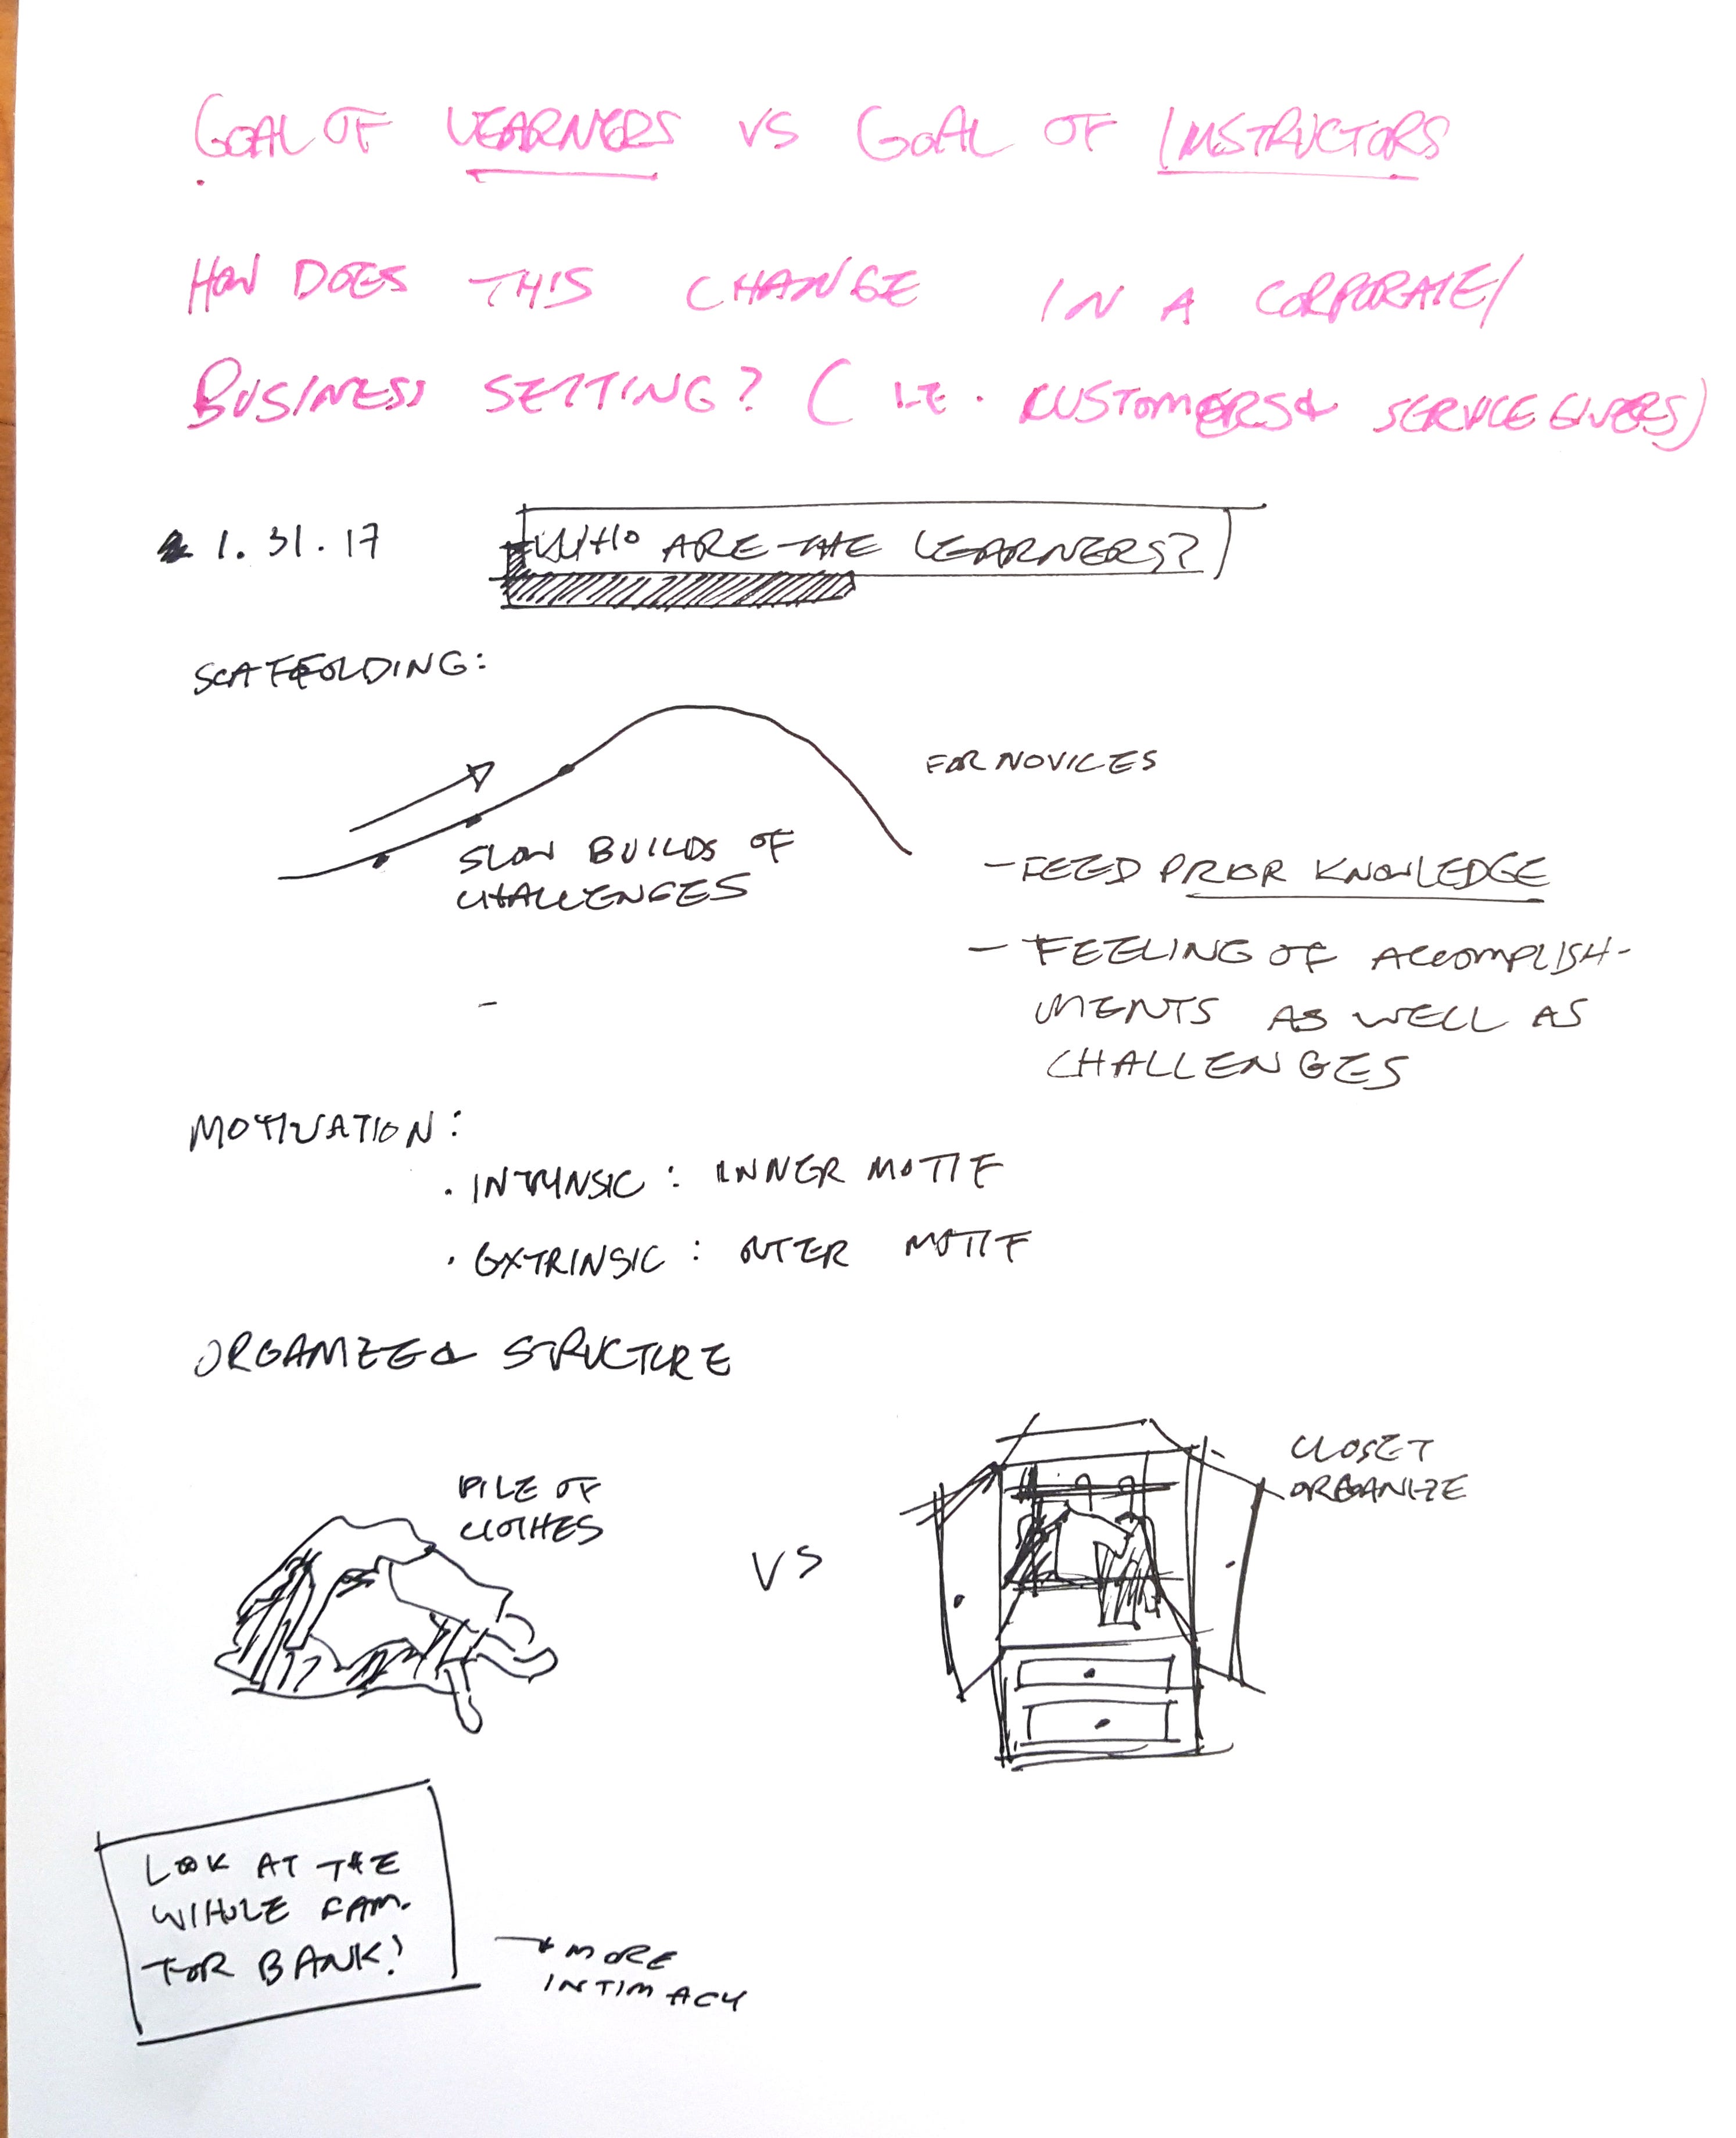 GOAL OF LEARNERS VS GOAL OF INSTRUCTORS
HOW DOES THIS CHANGE IN A CORPORATE/
BUSINESS SETTING? (I.E. CUSTOMERS & SERVICE GIVERS)
1.31.17
WHO ARE THE LEARNERS?
SCAFFOLDING:
FOR NOVICES
SLOW BUILDS OF
CHALLENGES
- FEED PRIOR KNOWLEDGE
- FEELING OF ACCOMPLISH-
MENTS AS WELL AS
CHALLENGES
-
MOTIVATION:
. INTRINSIC : INNER MOTIF
. EXTRINSIC : OUTER MOTIF
ORGANIZE & STRUCTURE
PILE OF
CLOTHES
VS
CLOSET
ORGANIZE
LOOK AT THE
WHOLE FAM.
FOR BANK!
→ MORE
INTIMACY